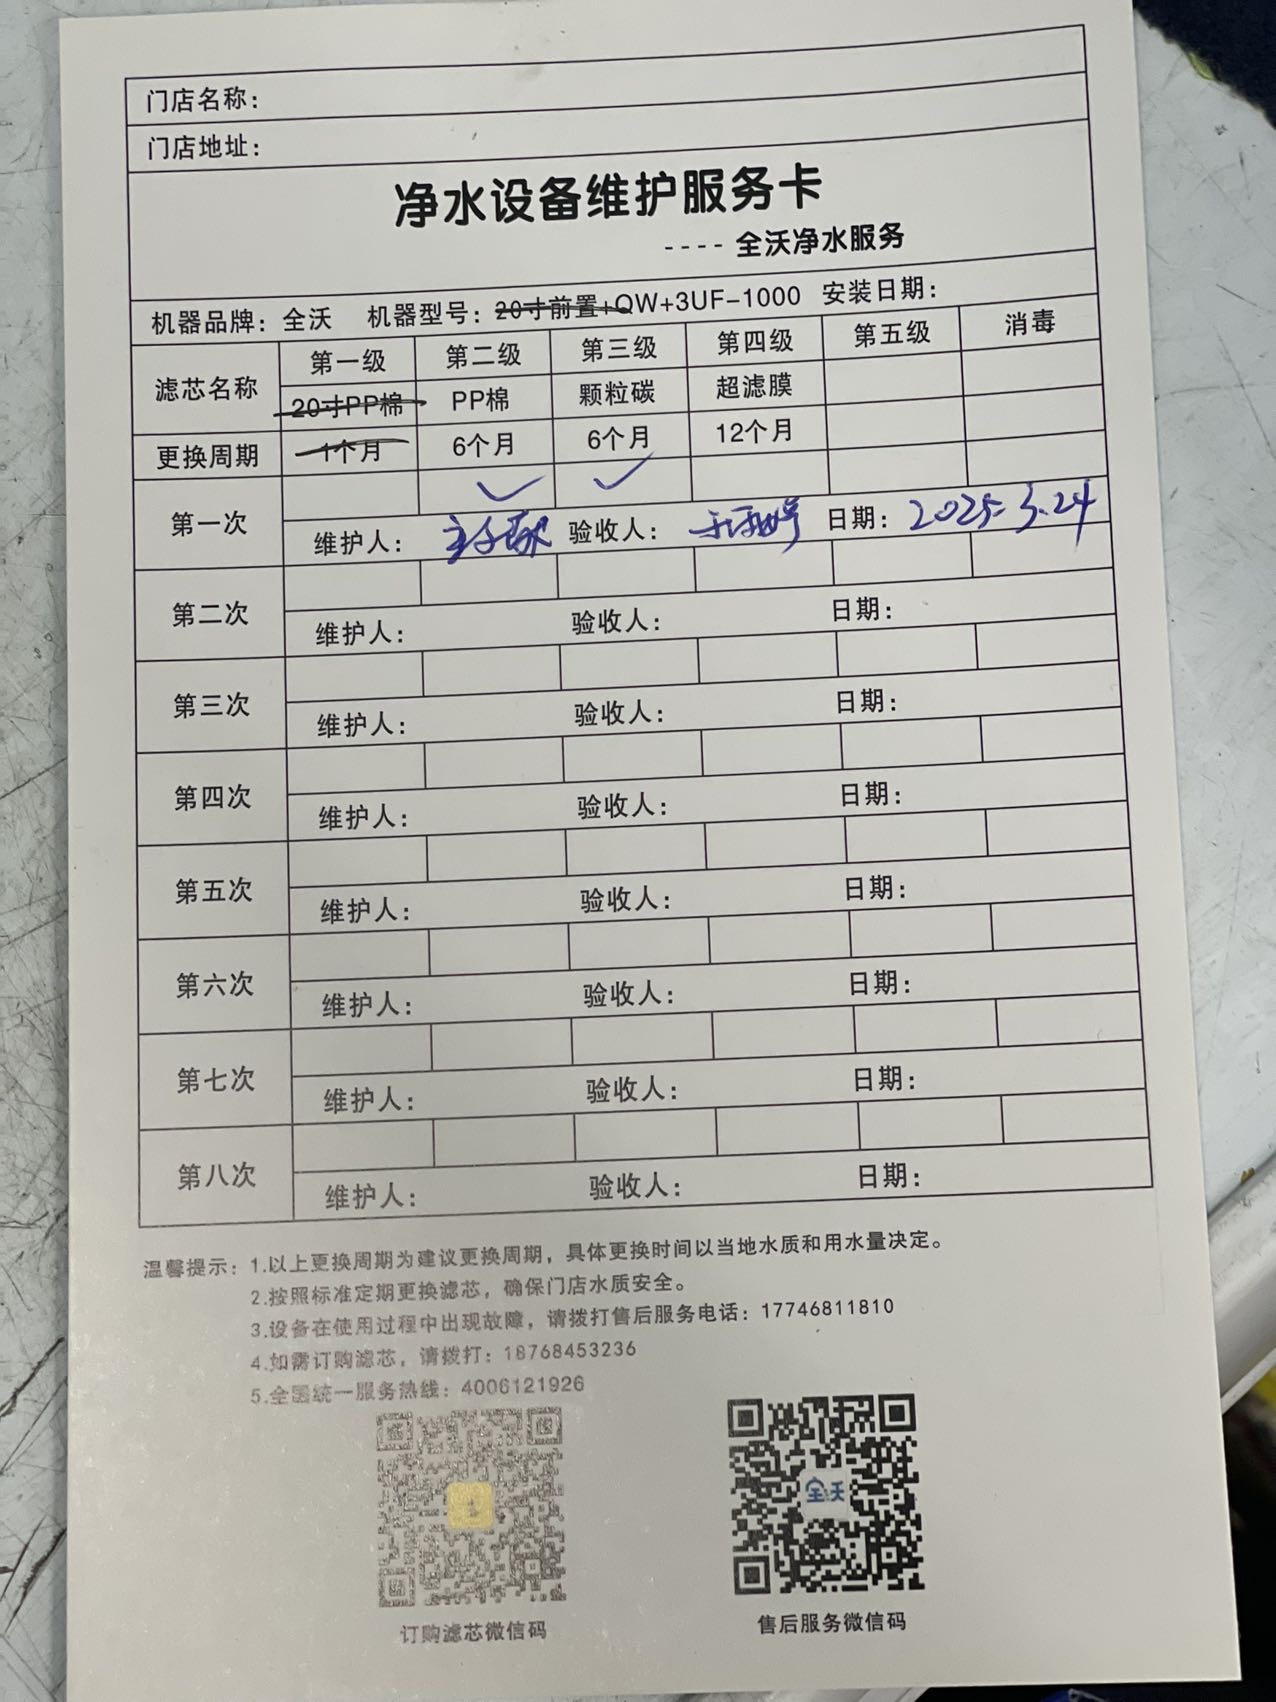 门店名称：
门店地址：
净水设备维护服务卡
----全沃净水服务
机器品牌：全沃 机器型号：20寸前置+QW+3UF-1000 安装日期：
滤芯名称 第一级 第二级 第三级 第四级 第五级 消毒
20寸PP棉 PP棉 颗粒碳 超滤膜
更换周期 1个月 6个月 6个月 12个月
✓ ✓
第一次 维护人： 验收人： 日期：2025.3.24
第二次 维护人： 验收人： 日期：
第三次 维护人： 验收人： 日期：
第四次 维护人： 验收人： 日期：
第五次 维护人： 验收人： 日期：
第六次 维护人： 验收人： 日期：
第七次 维护人： 验收人： 日期：
第八次 维护人： 验收人： 日期：
温馨提示：1.以上更换周期为建议更换周期，具体更换时间以当地水质和用水量决定。
2.按照标准定期更换滤芯，确保门店水质安全。
3.设备在使用过程中出现故障，请拨打售后服务电话：17746811810
4.如需订购滤芯，请拨打：18768453236
5.全国统一服务热线：4006121926
全沃
订购滤芯微信码 售后服务微信码